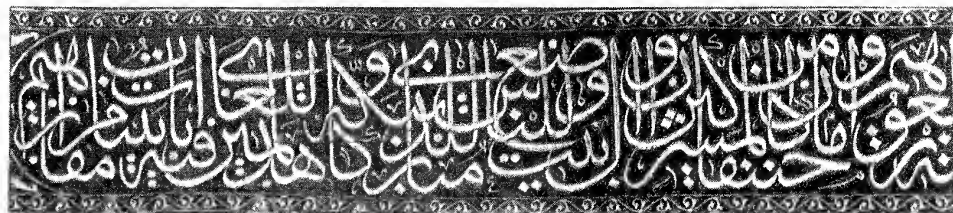 حنيفا وما كان من المشركين ان اول بيت وضع للناس للذي ببكة مباركا وهدى للعالمين فيه ايات بينات مقام ابراهيم